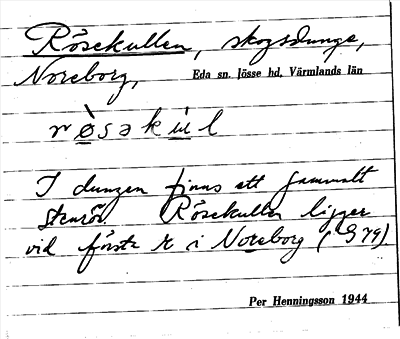 Rösekullen, skogsdunge,
Noreborg, Eda sn. Jösse hd, Värmlands län
røsəkul
I dungen finns ett gammalt
stenrös. Rösekullen ligger
vid första R i Noreborg (G 79).
Per Henningsson 1944